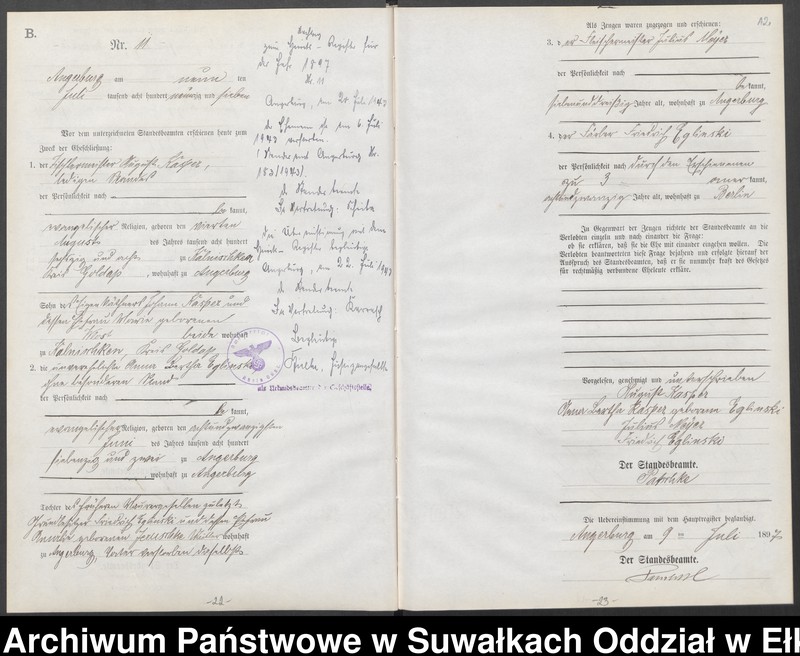 B.
Nr. 11
Angerburg am neun ten
Juli tausend acht hundert neunzig und sieben
Vor dem unterzeichneten Standesbeamten erschienen heute zum
Zweck der Eheschließung:
1. der Tischlermeister August Kasper,
ledigen Standes
der Persönlichkeit nach
be kannt,
evangelischer Religion, geboren den vierten
August des Jahres tausend acht hundert
sechzig und acht zu Kalnischken
Kreis Goldap, wohnhaft zu Angerburg
Sohn des Johann Kasper und
dessen Ehefrau Marie geborenen
beide wohnhaft
zu Kalnischken, Kreis Goldap
2. die unverehelichte Anna Bertha Eglinski
ohne besonderen Stand
der Persönlichkeit nach
be kannt,
evangelischer Religion, geboren den achtundzwanzigsten
Juni des Jahres tausend acht hundert
siebenzig und zwei zu Angerburg
, wohnhaft zu Angerburg
Tochter des früheren Maurergesellen zuletzt
Friedrich Eglinski und dessen Ehefrau
geborenen wohnhaft
zu Angerburg, Vater verstorben daselbst
zum Heirats-Register für
das Jahr 1897
Nr. 11
Angerburg, den 20 Juli 1943
Der Ehemann ist am 6. Juli
1943 verstorben.
(Standesamt Angerburg Nr.
153/1943).
Der Standesbeamte
In Vertretung:
Die Übereinstimmung mit dem
Haupt-Register beglaubigt
Angerburg, den 22. Juli 1943
Der Standesbeamte
In Vertretung:
Beglaubigt
als Urkundsbeamter der Geschäftsstelle.
-22-
Als Zeugen waren zugezogen und erschienen:
3. der Fleischermeister Julius Meyer
der Persönlichkeit nach
be kannt,
siebenunddreißig Jahre alt, wohnhaft zu Angerburg
4. der Friedrich Eglinski
der Persönlichkeit nach durch den Erschienenen
zu 3 aner kannt,
achtundzwanzig Jahre alt, wohnhaft zu Berlin
In Gegenwart der Zeugen richtete der Standesbeamte an die
Verlobten einzeln und nach einander die Frage:
ob sie erklären, daß sie die Ehe mit einander eingehen wollen. Die
Verlobten beantworteten diese Frage bejahend und erfolgte hierauf der
Ausspruch des Standesbeamten, daß er sie nunmehr kraft des Gesetzes
für rechtmäßig verbundene Eheleute erkläre.
Vorgelesen, genehmigt und unterschrieben
August Kasper
Anna Bertha Kasper geborene Eglinski
Julius Meyer
Friedrich Eglinski
Der Standesbeamte.
Die Uebereinstimmung mit dem Hauptregister beglaubigt.
Angerburg am 9 ten Juli 1897
Der Standesbeamte.
-23-
Archiwum Państwowe w Suwałkach Oddział w Ełk